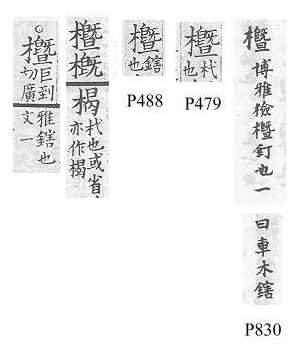 巨到
切廣
雅鎋也
文一
楬
杙也或省
亦作楬
鎋
也
P488
杙
也
P479
博雅檢釘也一
曰車木鎋
P830